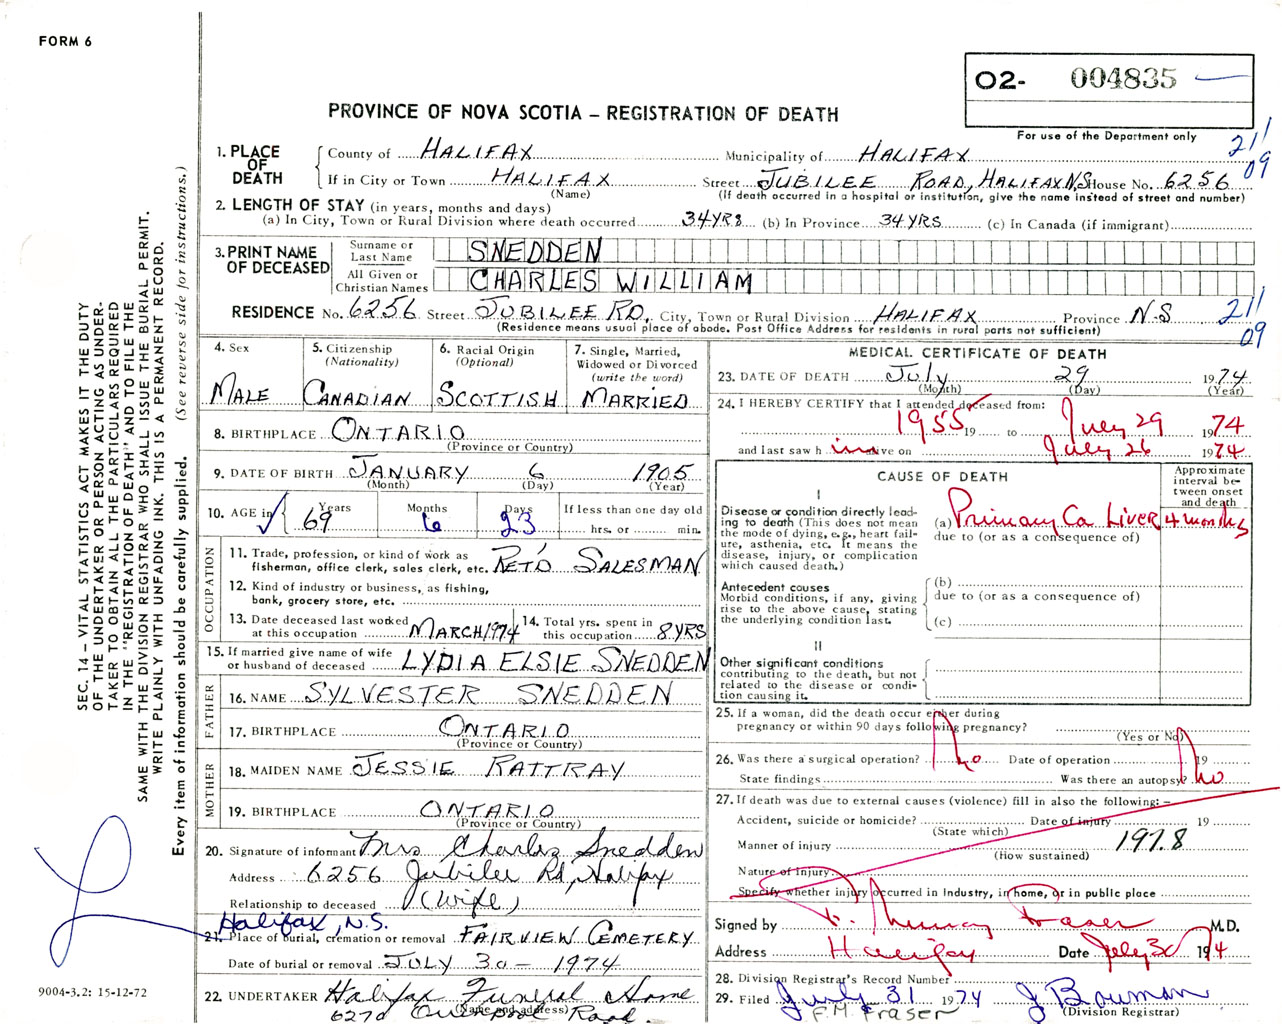 FORM 6
O2- 004835
For use of the Department only
PROVINCE OF NOVA SCOTIA – REGISTRATION OF DEATH
211
09
1. PLACE OF DEATH
County of HALIFAX Municipality of HALIFAX
If in City or Town HALIFAX Street JUBILEE ROAD, HALIFAX N.S. House No. 6256
(Name) (If death occurred in a hospital or institution, give the name instead of street and number)
2. LENGTH OF STAY (in years, months and days)
(a) In City, Town or Rural Division where death occurred 34 YRS (b) In Province 34 YRS (c) In Canada (if immigrant)
3. PRINT NAME OF DECEASED
Surname or Last Name SNEDDEN
All Given or Christian Names CHARLES WILLIAM
RESIDENCE No. 6256 Street JUBILEE RD, City, Town or Rural Division HALIFAX Province N.S
(Residence means usual place of abode. Post Office Address for residents in rural parts not sufficient)
211
09
4. Sex
MALE
5. Citizenship
(Nationality)
CANADIAN
6. Racial Origin
(Optional)
SCOTTISH
7. Single, Married,
Widowed or Divorced
(write the word)
MARRIED
8. BIRTHPLACE ONTARIO
(Province or Country)
9. DATE OF BIRTH JANUARY 6 1905
(Month) (Day) (Year)
10. AGE in 69 Years 6 Months 23 Days
If less than one day old
hrs. or min.
OCCUPATION
11. Trade, profession, or kind of work as
fisherman, office clerk, sales clerk, etc. RET'D SALESMAN
12. Kind of industry or business, as fishing,
bank, grocery store, etc.
13. Date deceased last worked
at this occupation MARCH 1974
14. Total yrs. spent in
this occupation 8 YRS
15. If married give name of wife
or husband of deceased LYDIA ELSIE SNEDDEN
FATHER
16. NAME SYLVESTER SNEDDEN
17. BIRTHPLACE ONTARIO
(Province or Country)
MOTHER
18. MAIDEN NAME JESSIE RATTRAY
19. BIRTHPLACE ONTARIO
(Province or Country)
20. Signature of informant Mrs Charles Snedden
Address 6256 Jubilee Rd, Halifax
Relationship to deceased (wife)
Halifax, N.S.
21. Place of burial, cremation or removal FAIRVIEW CEMETERY
Date of burial or removal JULY 30 – 1974
22. UNDERTAKER Halifax Funeral Home
(Name and address)
Road.
MEDICAL CERTIFICATE OF DEATH
23. DATE OF DEATH July 29 1974
(Month) (Day) (Year)
24. I HEREBY CERTIFY that I attended deceased from:
1955 19 to July 29 1974
and last saw h im alive on July 26 1974
CAUSE OF DEATH
Approximate
interval be-
tween onset
and death
I
Disease or condition directly lead-
ing to death (This does not mean
the mode of dying, e.g., heart fail-
ure, asthenia, etc. It means the
disease, injury, or complication
which caused death.)
(a) Primary Ca Liver 4 months
due to (or as a consequence of)
Antecedent causes
Morbid conditions, if any, giving
rise to the above cause, stating
the underlying condition last.
(b)
due to (or as a consequence of)
(c)
II
Other significant conditions
contributing to the death, but not
related to the disease or condi-
tion causing it.
25. If a woman, did the death occur either during
pregnancy or within 90 days following pregnancy?
(Yes or No)
26. Was there a surgical operation? No Date of operation 19
State findings Was there an autopsy? No
27. If death was due to external causes (violence) fill in also the following: –
Accident, suicide or homicide? Date of injury 19
(State which)
Manner of injury 197.8
(How sustained)
Nature of Injury
Specify whether injury occurred in Industry, in home, or in public place
Signed by F. Murray Fraser M.D.
Address Halifax Date July 30 1974
28. Division Registrar's Record Number
29. Filed July 31 1974 J Bowman
F.M. Fraser (Division Registrar)
SEC. 14 – VITAL STATISTICS ACT MAKES IT THE DUTY
OF THE UNDERTAKER OR PERSON ACTING AS UNDER-
TAKER TO OBTAIN ALL THE PARTICULARS REQUIRED
IN THE "REGISTRATION OF DEATH" AND TO FILE THE
SAME WITH THE DIVISION REGISTRAR WHO SHALL ISSUE THE BURIAL PERMIT.
WRITE PLAINLY WITH UNFADING INK. THIS IS A PERMANENT RECORD.
Every item of information should be carefully supplied. (See reverse side for instructions.)
9004-3.2: 15-12-72